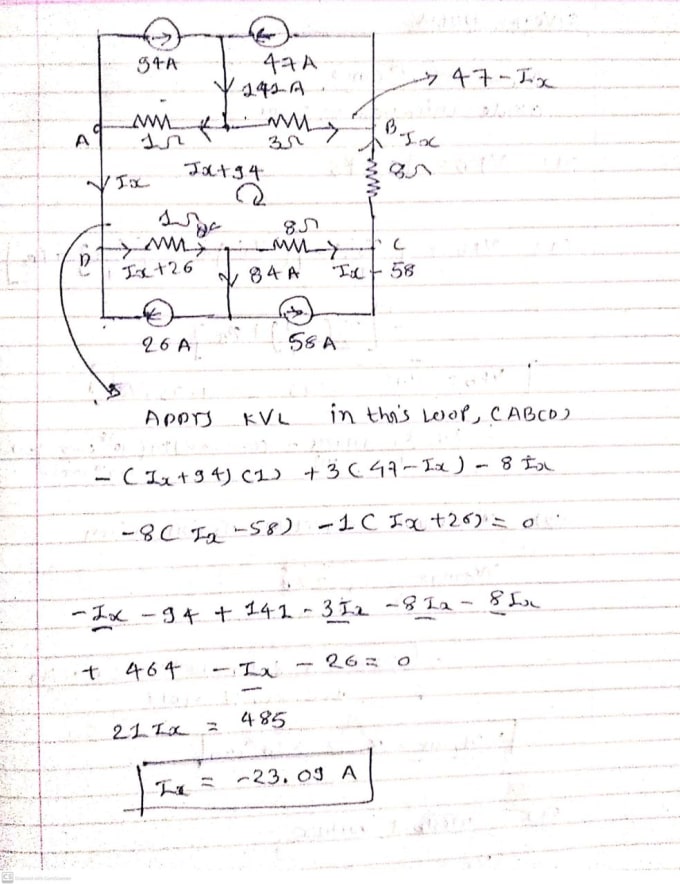 94A
47A
141A
47-Ix
A
1Ω
3Ω
B
Ix
Ix
Ix+94
8Ω
1Ω
8Ω
D
C
Ix+26
84A
Ix-58
26A
58A
Apply KVL in this Loop, (ABCD)
-(Ix+94)(1) +3(47-Ix)-8Ix
-8(Ix-58) -1(Ix+26)=0
-Ix-94+141-3Ix-8Ix-8Ix
+464-Ix-26=0
21Ix = 485
Ix = -23.09 A
CS Scanned with CamScanner